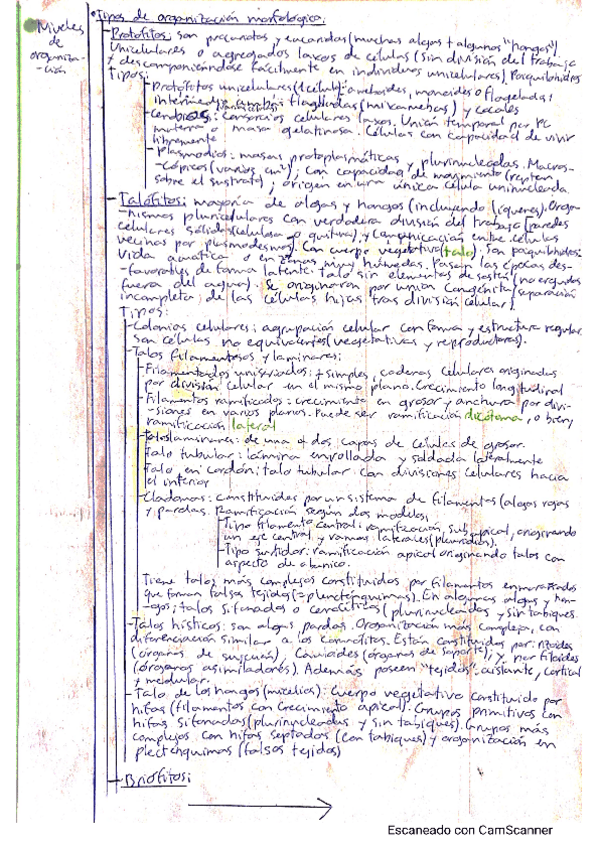 Niveles
de
organiza-
-ción
Tipos de organización morfológica:
Protófitos: son procariotas y eucariotas (muchas algas + algunos "hongos")
Unicelulares o agregados laxos de células (sin división del trabajo
y descomponiéndose fácilmente en individuos unicelulares). Poiquilohidros
Tipos:
Protófitos unicelulares (1 célula): ameboides, monoides o flagelados;
intermedios (mixamebas) y cocales
Cenobios: consorcios celulares laxos. Unión temporal por PC
materna o masa gelatinosa. Células con capacidad de vivir
libremente
Plasmodios: masas protoplasmáticas y plurinucleadas. Macros-
-cópicos (varios cm²); con capacidad de movimiento (reptan
sobre el sustrato); origen en una única célula uninucleada.
Talófitos: mayoría de algas y hongos (incluyendo líquenes). Orga-
-nismos pluricelulares con verdadera división del trabajo (paredes
celulares sólidas (celulosa o quitina) y comunicación entre células
vecinas por plasmodesmos). Con cuerpo vegetativo (talo) son poiquilohidros:
vida acuática o en zonas muy húmedas. Pasan las épocas des-
-favorables de forma latente: talo sin elementos de sostén (no erguidos
fuera del agua). Se originaron por unión congénita (separación
incompleta) de las células hijas tras división celular.
Tipos:
Colonias celulares: agrupación celular con forma y estructura regular.
Son células no equivalentes (vegetativas y reproductoras).
Talos filamentosos y laminares:
Filamentosos uniseriados: + simples, cadenas celulares originadas
por división celular en el mismo plano. Crecimiento longitudinal
Filamentos ramificados: crecimiento en grosor y anchura por divi-
-siones en varios planos. Puede ser ramificación dicótoma, o bien,
ramificación lateral
Talos laminares: de una o dos capas de células de grosor.
Talo tubular: lámina enrollada y soldada lateralmente
Talo en cordón: talo tubular con divisiones celulares hacia
el interior
Cladomas: constituidos por un sistema de filamentos (algas rojas
y pardas. Ramificación según dos modelos,
Tipo filamento central: ramificación subapical, originando
un eje central y ramas laterales (pleuridios).
Tipo surtidor: ramificación apical originando talos con
aspecto de abanico.
Tiene talos más complejos constituidos por filamentos enmarañados
que forman falsos tejidos (= plecténquimas). En algunas algas y hon-
-gos; talos sifonados o cenocíticos (plurinucleados y sin tabiques.
Talos hísticos: son algas pardas. Organización más compleja, con
diferenciación similar a los cormófitos. Están constituidos por: rizoides
(órganos de sujeción), cauloides (órganos de soporte), y por filoides
(órganos asimiladores). Además poseen "tejidos": aislante, cortical
y medular.
Talo de los hongos (micelios): cuerpo vegetativo constituido por
hifas (filamentos con crecimiento apical). Grupos primitivos con
hifas sifonadas (plurinucleadas y sin tabiques). Grupos más
complejos con hifas septadas (con tabiques) y organización en
plecténquimas (falsos tejidos)
Briófitos:
Escaneado con CamScanner